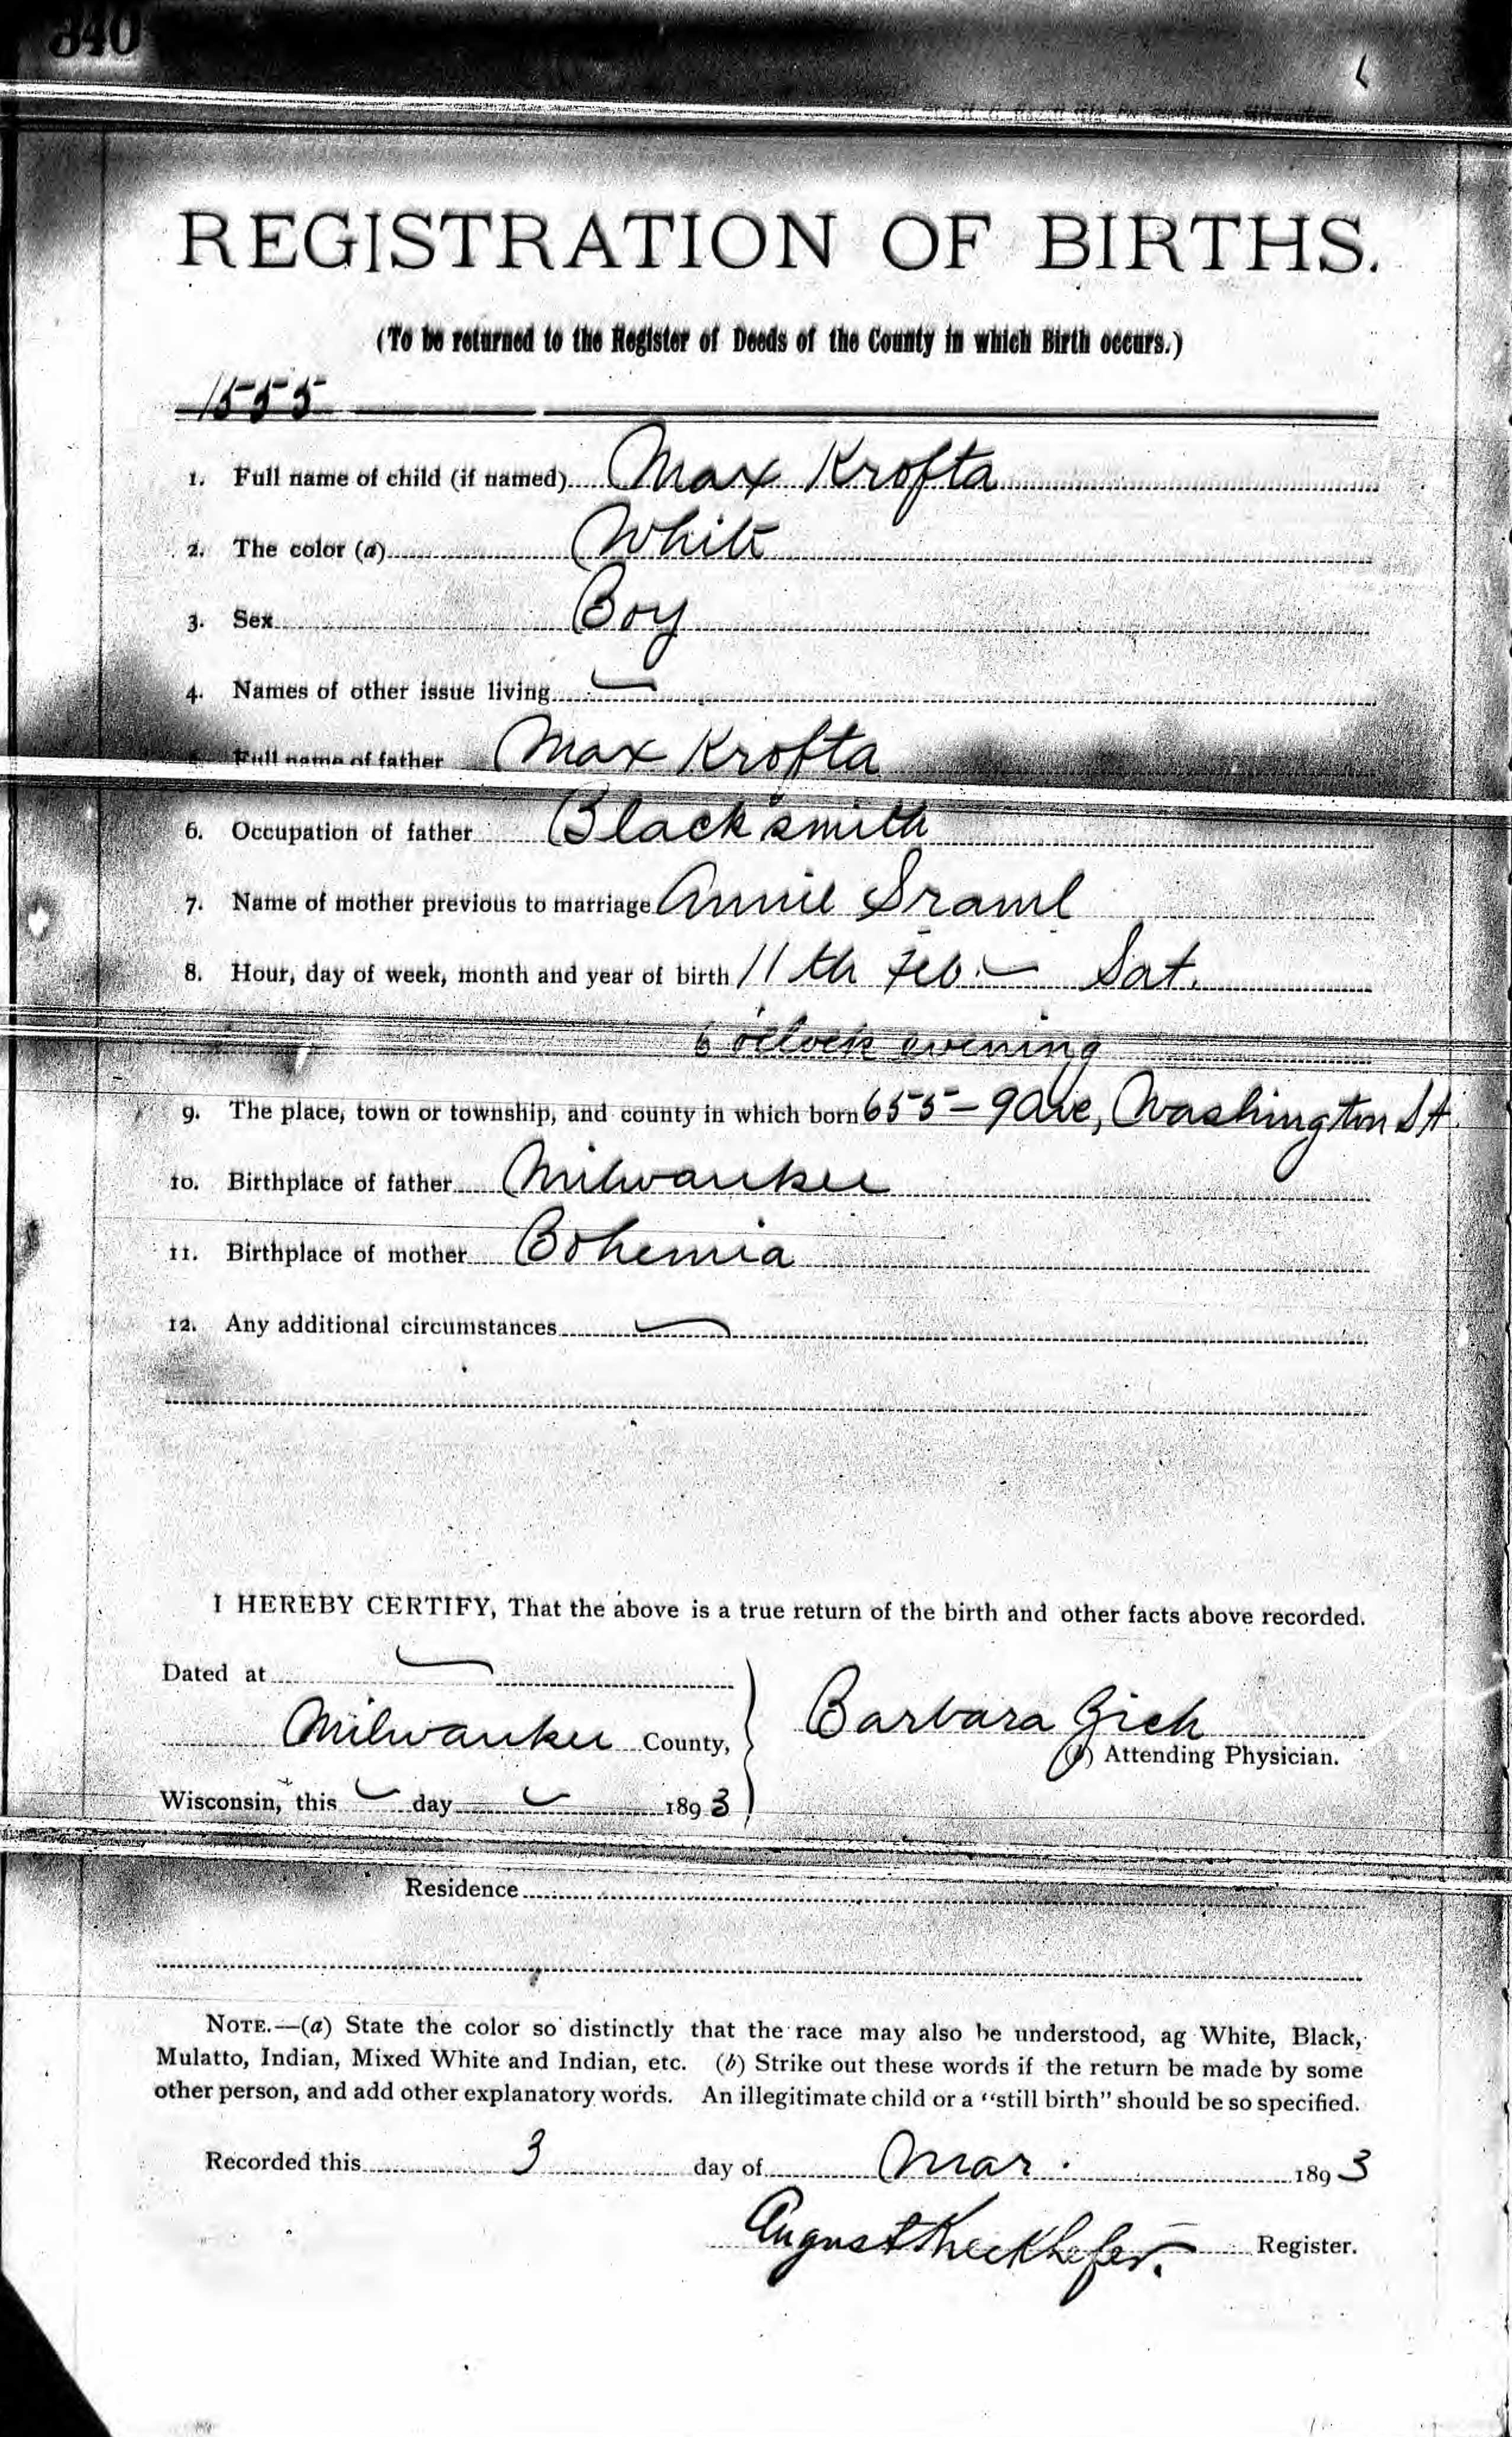 840
REGISTRATION OF BIRTHS.
(To be returned to the Register of Deeds of the County in which Birth occurs.)
1555
1. Full name of child (if named) Max Krofta
2. The color (a) White
3. Sex Boy
4. Names of other issue living —
Full name of father Max Krofta
6. Occupation of father Blacksmith
7. Name of mother previous to marriage Annie Sraml
8. Hour, day of week, month and year of birth 11th Feb. — Sat.
6 o'clock evening
9. The place, town or township, and county in which born 655 - 9 Ave, Washington St.
10. Birthplace of father Milwaukee
11. Birthplace of mother Bohemia
12. Any additional circumstances —
I HEREBY CERTIFY, That the above is a true return of the birth and other facts above recorded.
Dated at —
Milwaukee County,
Barbara Zich
(b) Attending Physician.
Wisconsin, this — day — 1893
Residence
NOTE.—(a) State the color so distinctly that the race may also be understood, ag White, Black,
Mulatto, Indian, Mixed White and Indian, etc. (b) Strike out these words if the return be made by some
other person, and add other explanatory words. An illegitimate child or a "still birth" should be so specified.
Recorded this 3 day of Mar. 1893
August Kieckhefer. Register.